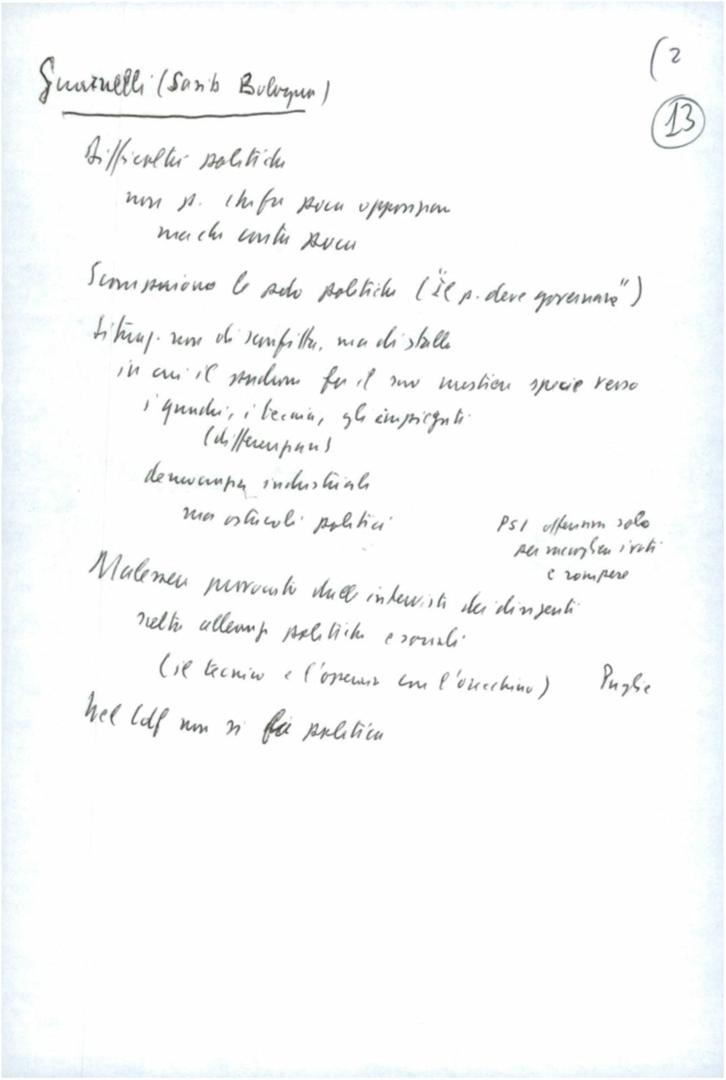 (2
13
(Sasib Bologna)
Difficoltà politiche
non p. che fa poca opposizion
ma che conta poco
Scompaiono le politiche ("Il p. deve governare")
Situaz. non di sconfitta, ma di stallo
in cui il padrone fa il suo mestiere specie verso
i quadri, i tecnici, gli impiegati
(differenziaz)
democrazia industriale
ma ostacoli politici
PSI solo
per i voti
e rompere
Malessere provocato dalle interviste dei dirigenti
nelle alleanz politiche e sociali
(il tecnico e l'operaio con l'orecchino) Puglie
Nel Cdf non si fa politica